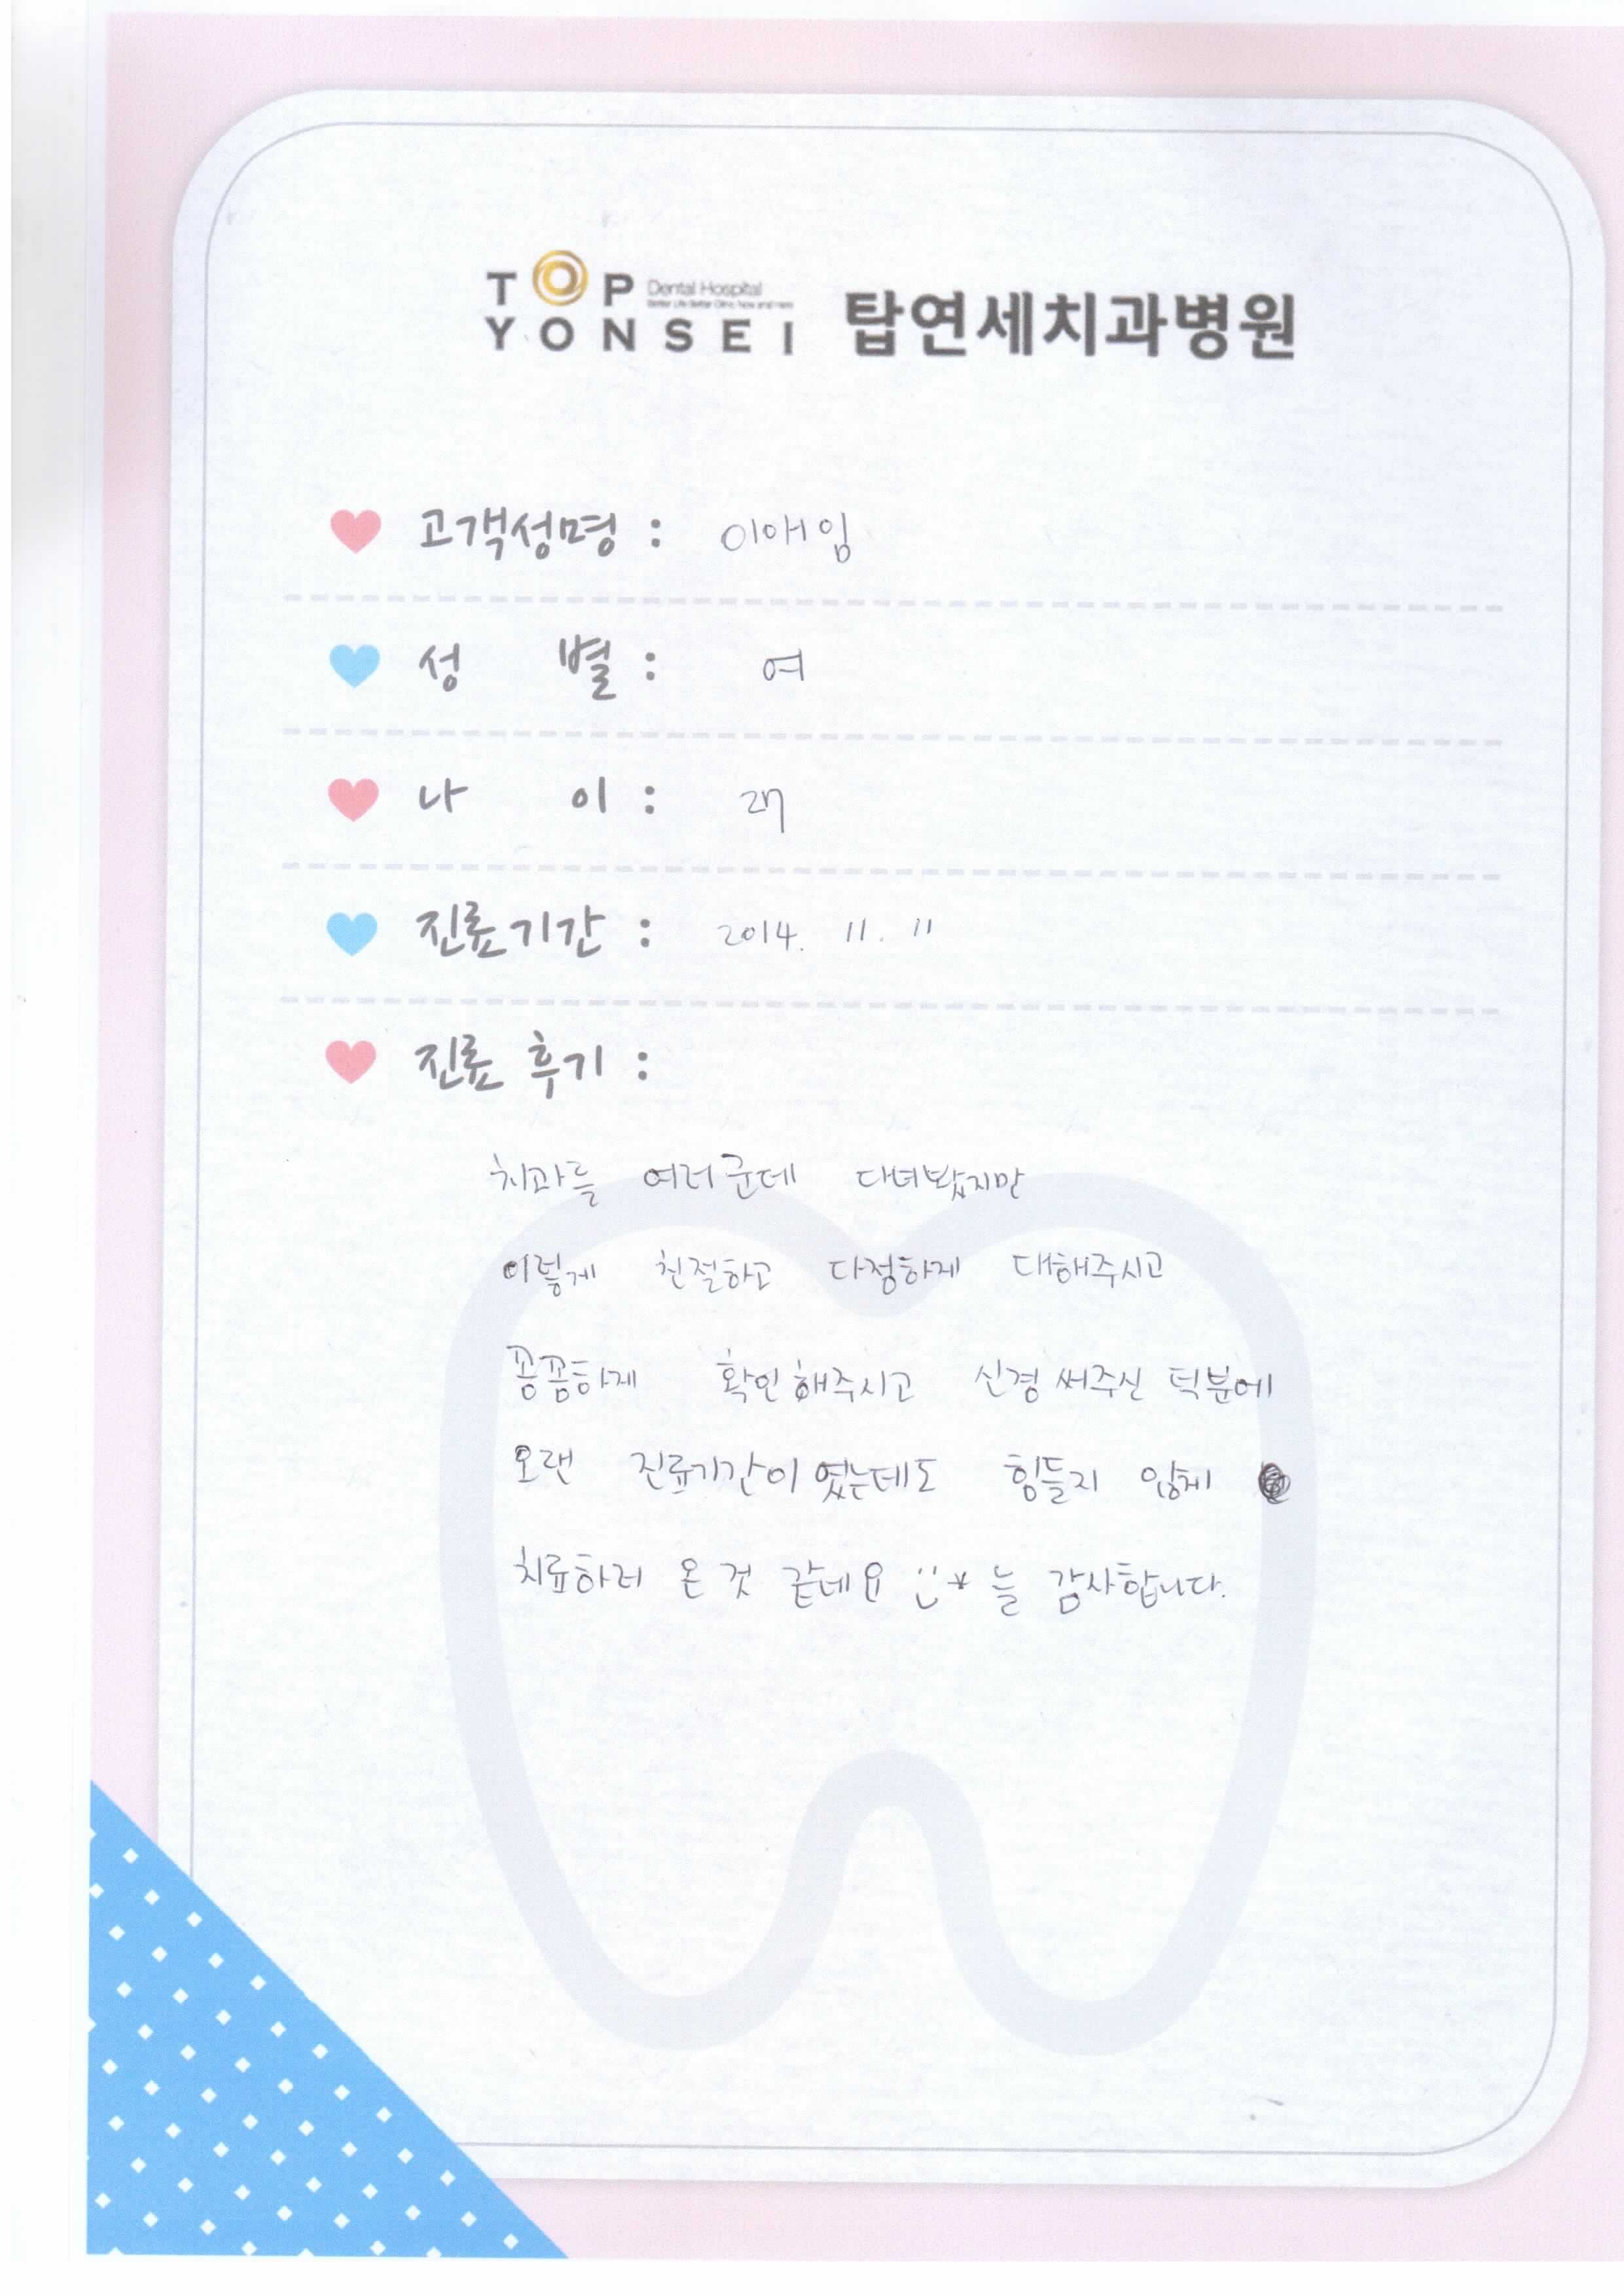 TOP Dental Hospital
YONSEI 탑연세치과병원
고객성명 : 이애임
성 별 : 여
나 이 : 27
진료기간 : 2014. 11. 11
진료 후기 :
치과를 여러군데 다녀봤지만
이렇게 친절하고 다정하게 대해주시고
꼼꼼하게 확인해주시고 신경써주신 덕분에
오랜 진료기간이였는데도 힘들지 않게
치료하러 온 것 같네요 늘 감사합니다.